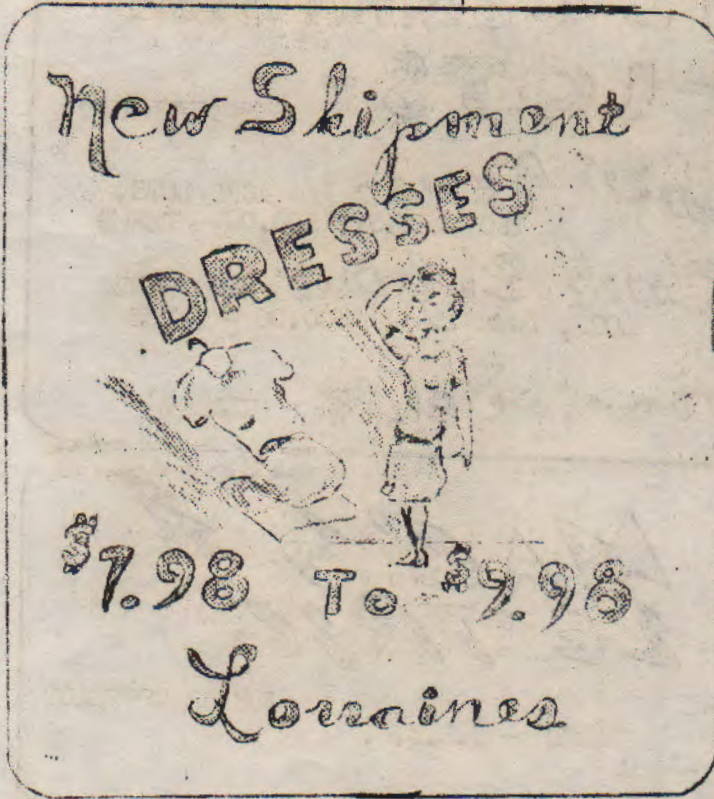 New Shipment
DRESSES
$7.98 To $9.98
Lorraines